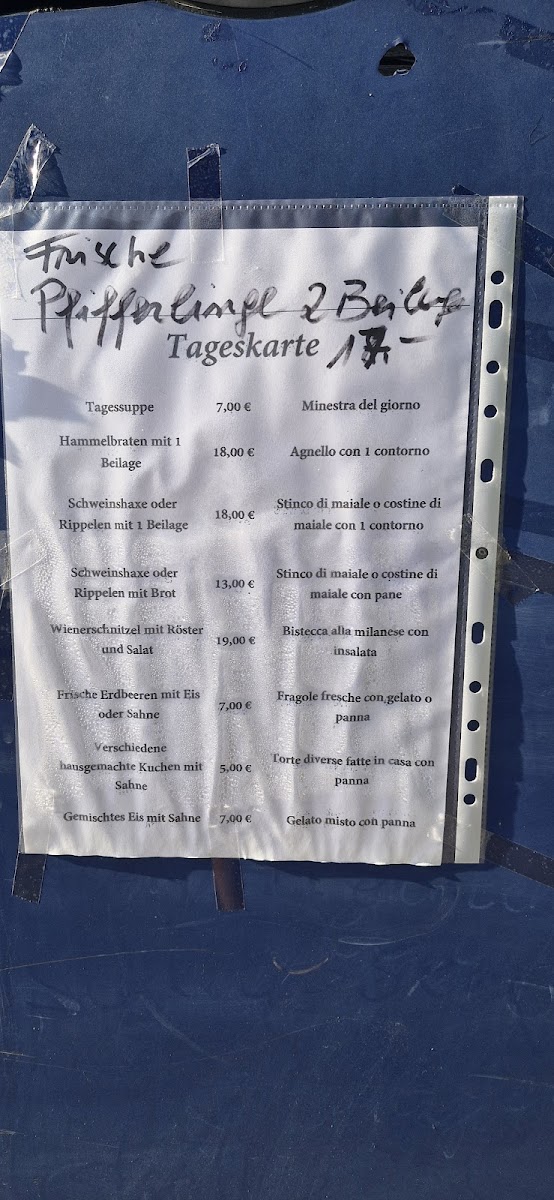 Frische
Pfifferlinge 2 Beilage
Tageskarte 17,-
Tagessuppe 7,00 € Minestra del giorno
Hammelbraten mit 1
Beilage
18,00 €
Agnello con 1 contorno
Schweinshaxe oder
Rippelen mit 1 Beilage
18,00 €
Stinco di maiale o costine di
maiale con 1 contorno
Schweinshaxe oder
Rippelen mit Brot
13,00 €
Stinco di maiale o costine di
maiale con pane
Wienerschnitzel mit Röster
und Salat
19,00 €
Bistecca alla milanese con
insalata
Frische Erdbeeren mit Eis
oder Sahne
7,00 €
Fragole fresche con gelato o
panna
Verschiedene
hausgemachte Kuchen mit
Sahne
5,00 €
Torte diverse fatte in casa con
panna
Gemischtes Eis mit Sahne 7,00 € Gelato misto con panna